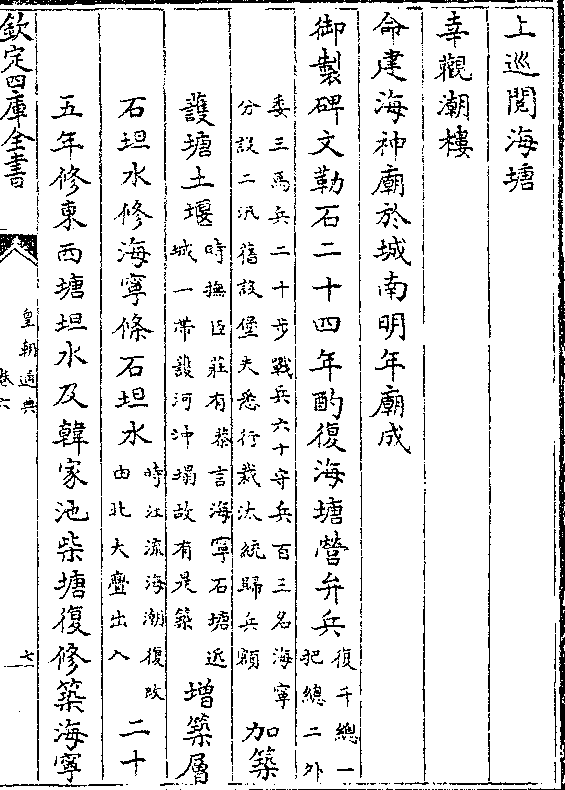 上巡閱海塘
幸觀潮樓
命建海神廟於城南明年廟成
御製碑文勒石二十四年酌復海塘營弁兵
復千總一
把總二外
委三馬兵二十步戰兵六十守兵百三名海寧
分設二汛舊設堡夫悉行裁汰統歸兵額
加築
護塘土堰
時撫臣莊有恭言海寧石塘近
城一帶護河沖塌故有是築
增築層
石坦水修海寧條石坦水
時江流海潮復改
由北大亹出入
二十
五年修東西塘坦水及韓家池柴塘復修築海寧
欽定四庫全書
皇朝通典
卷六
七